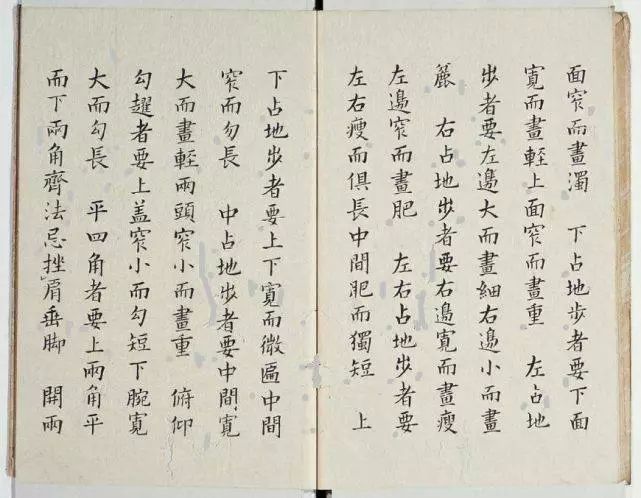 面窄而畫濁　下占地步者要下面
寬而畫輕上面窄而畫重　左占地
步者要左邊大而畫細右邊小而畫
麄　右占地步者要右邊寬而畫瘦
左邊窄而畫肥　左右占地步者要
左右瘦而俱長中間肥而獨短　上
下占地步者要上下寬而微匾中間
窄而勿長　中占地步者要中間寬
大而畫輕兩頭窄小而畫重　俯仰
勾趯者要上盖窄小而勾短下腕寬
大而勾長　平四角者要上兩角平
而下兩角齊法忌挫肩垂脚　開兩